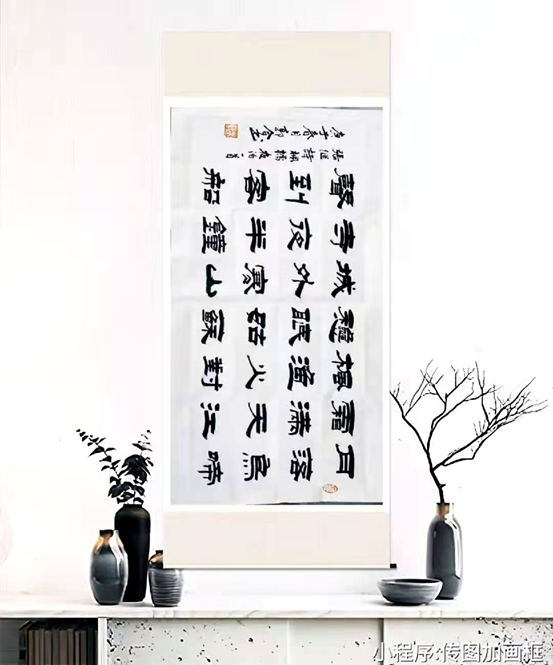 月落烏啼
霜滿天江
楓漁火對
愁眠姑蘇
城外寒山
寺夜半鐘
聲到客船
張继詩楓橋夜泊一首
庚子春月郭金
小程序:传图加画框